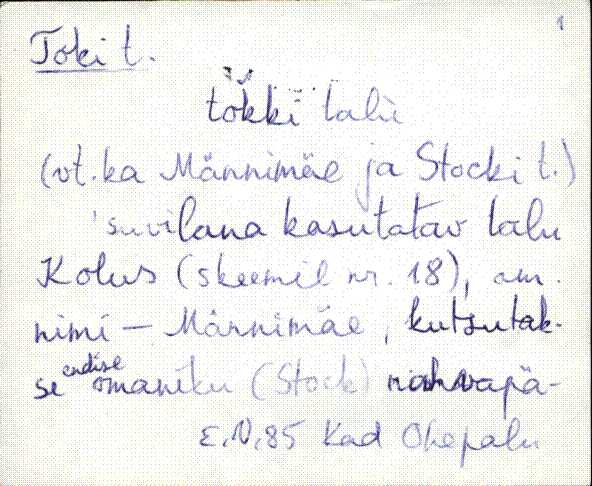 1
Toki t.
tokki talu
(vt. ka Männimäe ja Stocki t.)
'suvilana kasutatav talu
Kolus (skeemil nr. 18), am.
nimi – Männimäe, kutsutak-
se endise omaniku (Stock) rahvapä-
E.N. 85 Kad Ohepalu